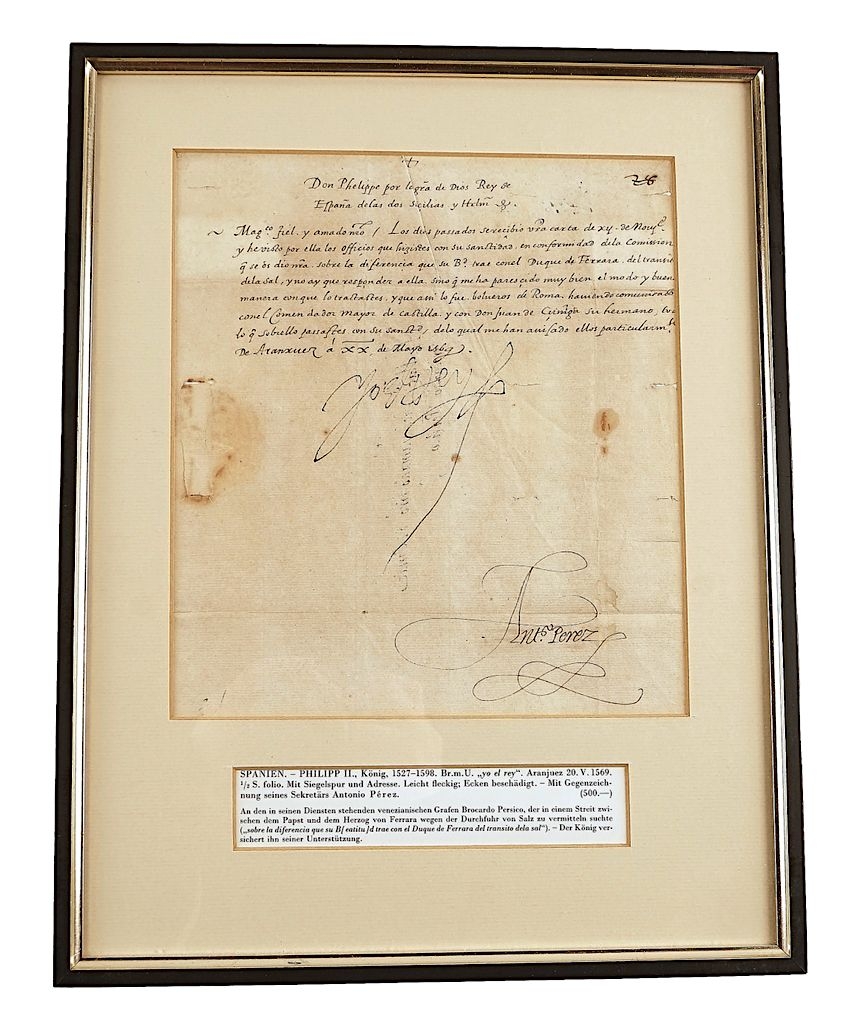 Don Phelippe por la gra de Dios Rey de
España delas dos Sicilias y Hrlm &.
Magco. fiel. y amado nro / Los dias passados se recibio vra carta de xij. de
y he visto por ella los officios que hizistes con su sanctidad. en conformidad dela Comission
q se os dio nra. sobre la diferencia que su Bd. trae conel Duque de Ferrara. del transito
dela sal, y no ay que responder a ella. sino q me ha parescido muy bien el modo y buena
manera con que lo tractastes, y que assi lo fue. bolueros de Roma. hauiendo comunicado
conel Comendador Mayor de castilla. y con Don Juan de Çuñiga su hermano,
lo q sobrello passastes con su sanctd, delo qual me han auisado ellos particularmte.
De Aranxuez à XX de Mayo 1569.
Yo el Rey
Anto. Perez
SPANIEN. – PHILIPP II., König, 1527–1598. Br.m.U. „yo el rey“. Aranjuez 20. V. 1569.
1/2 S. folio. Mit Siegelspur und Adresse. Leicht fleckig; Ecken beschädigt. – Mit Gegenzeich-
nung seines Sekretärs Antonio Pérez. (500.—)
An den in seinen Diensten stehenden venezianischen Grafen Brocardo Persico, der in einem Streit zwi-
schen dem Papst und dem Herzog von Ferrara wegen der Durchfuhr von Salz zu vermitteln suchte
(„sobre la diferencia que su B[eatitu]d trae con el Duque de Ferrara del transito dela sal“). – Der König ver-
sichert ihn seiner Unterstützung.